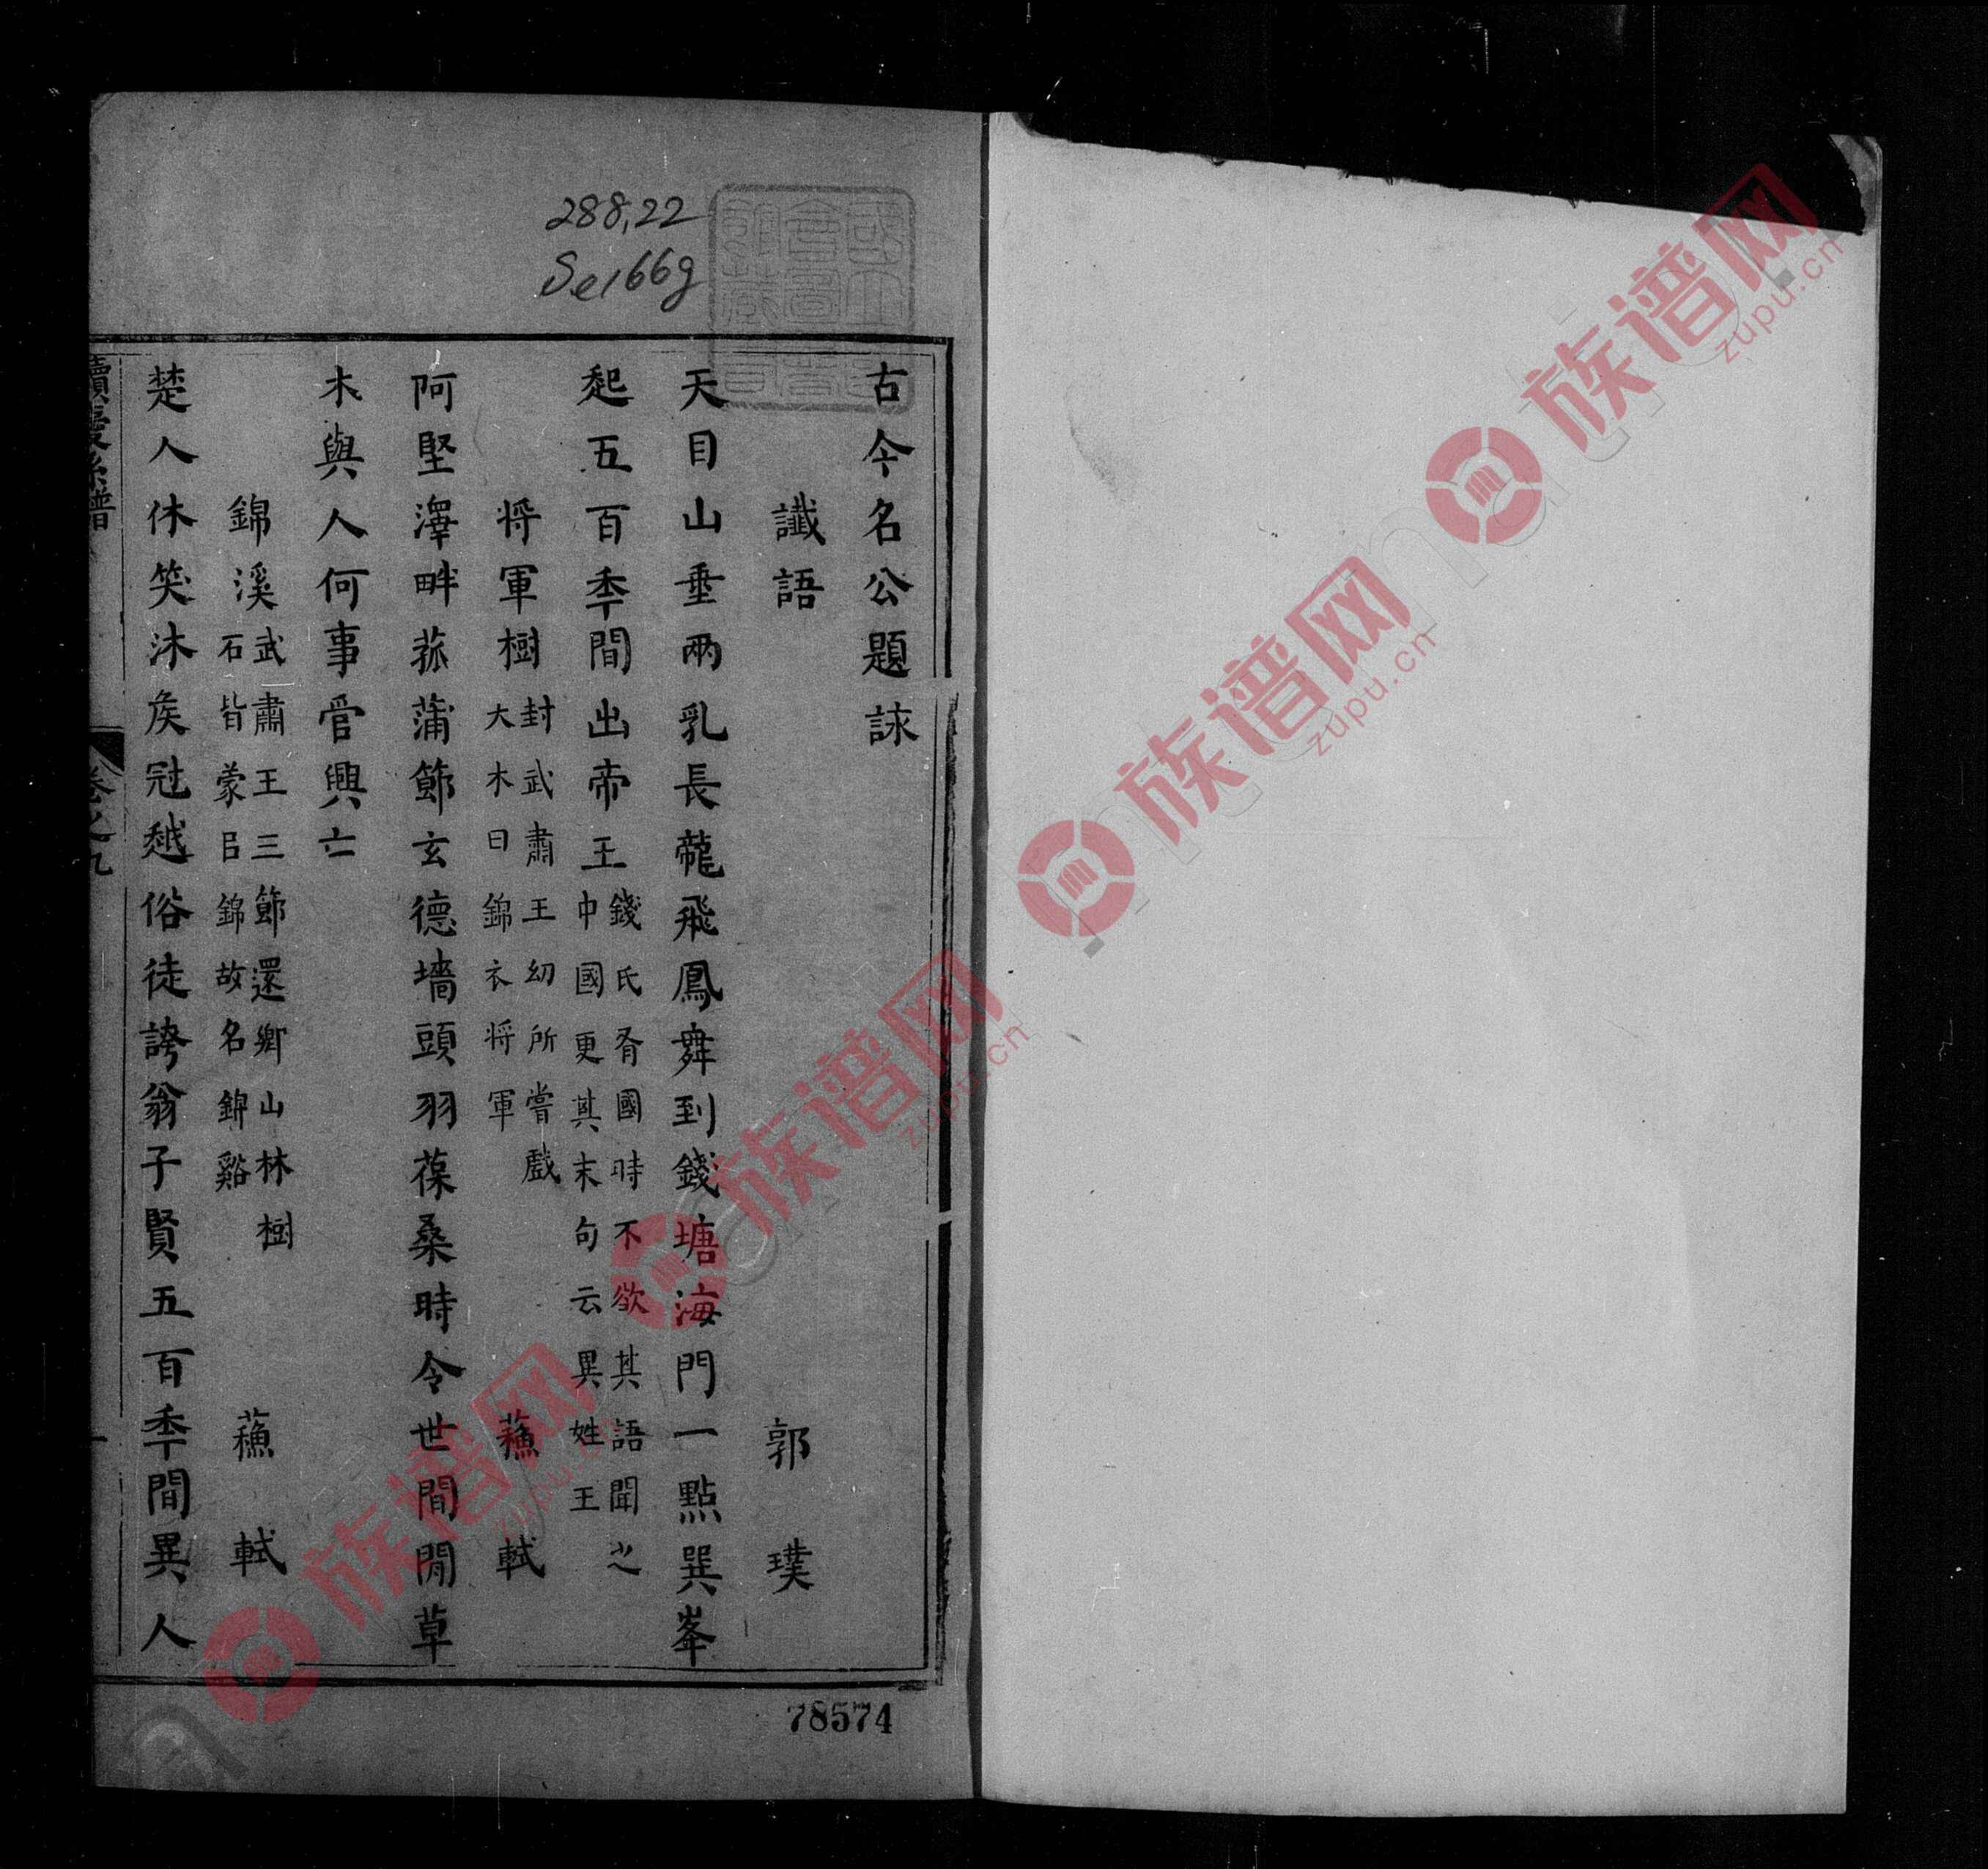 288.22
Se166g
古今名公題詠
讖語　郭璞
天目山垂兩乳長龍飛鳳舞到錢塘海門一點巽峯
起五百季間出帝王
錢氏有國時不欲其語聞之
中國更其末句云異姓王
将軍樹
封武肅王幼所嘗戲
大木曰錦衣将軍
蘓軾
阿堅澤畔菰蒲節玄德墻頭羽葆桑時令世間閒草
木與人何事管興亡
錦溪
武肅王三節還鄉山林樹
石皆蒙㠯錦故名錦谿
蘓軾
楚人休笑沐矦冠越俗徒誇翁子賢五百季間異人
續慶系譜
卷之九
一
78574
族谱网
zupu.cn
族谱网
zupu.cn
族谱网
zupu.cn
族谱网
zupu.cn